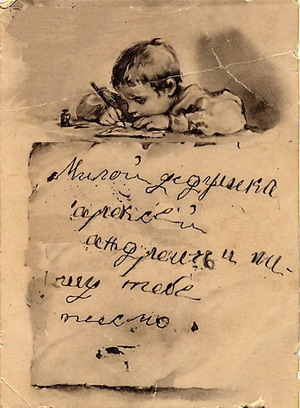 Милой дедушка
алексей
андреич и пи-
шу тебе
письмо